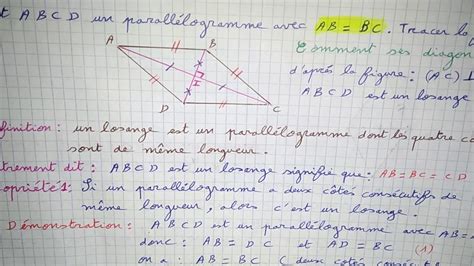 t A B C D un parallélogramme avec AB = BC. Tracer la
Comment ses diagon
d'après la figure : (AC) ⊥
A B C D est un losange
A
B
I
D
C
finition : un losange est un parallélogramme dont les quatre cô
sont de même longueur.
trement dit : A B C D est un losange signifie que : AB = BC = CD
opriété 1 : Si un parallélogramme a deux côtés consécutifs de
même longueur, alors c'est un losange.
Démonstration : A B C D est un parallélogramme avec AB =
donc : AB = DC et AD = BC (1)
on a : AB = BC ( deux côtés consécut